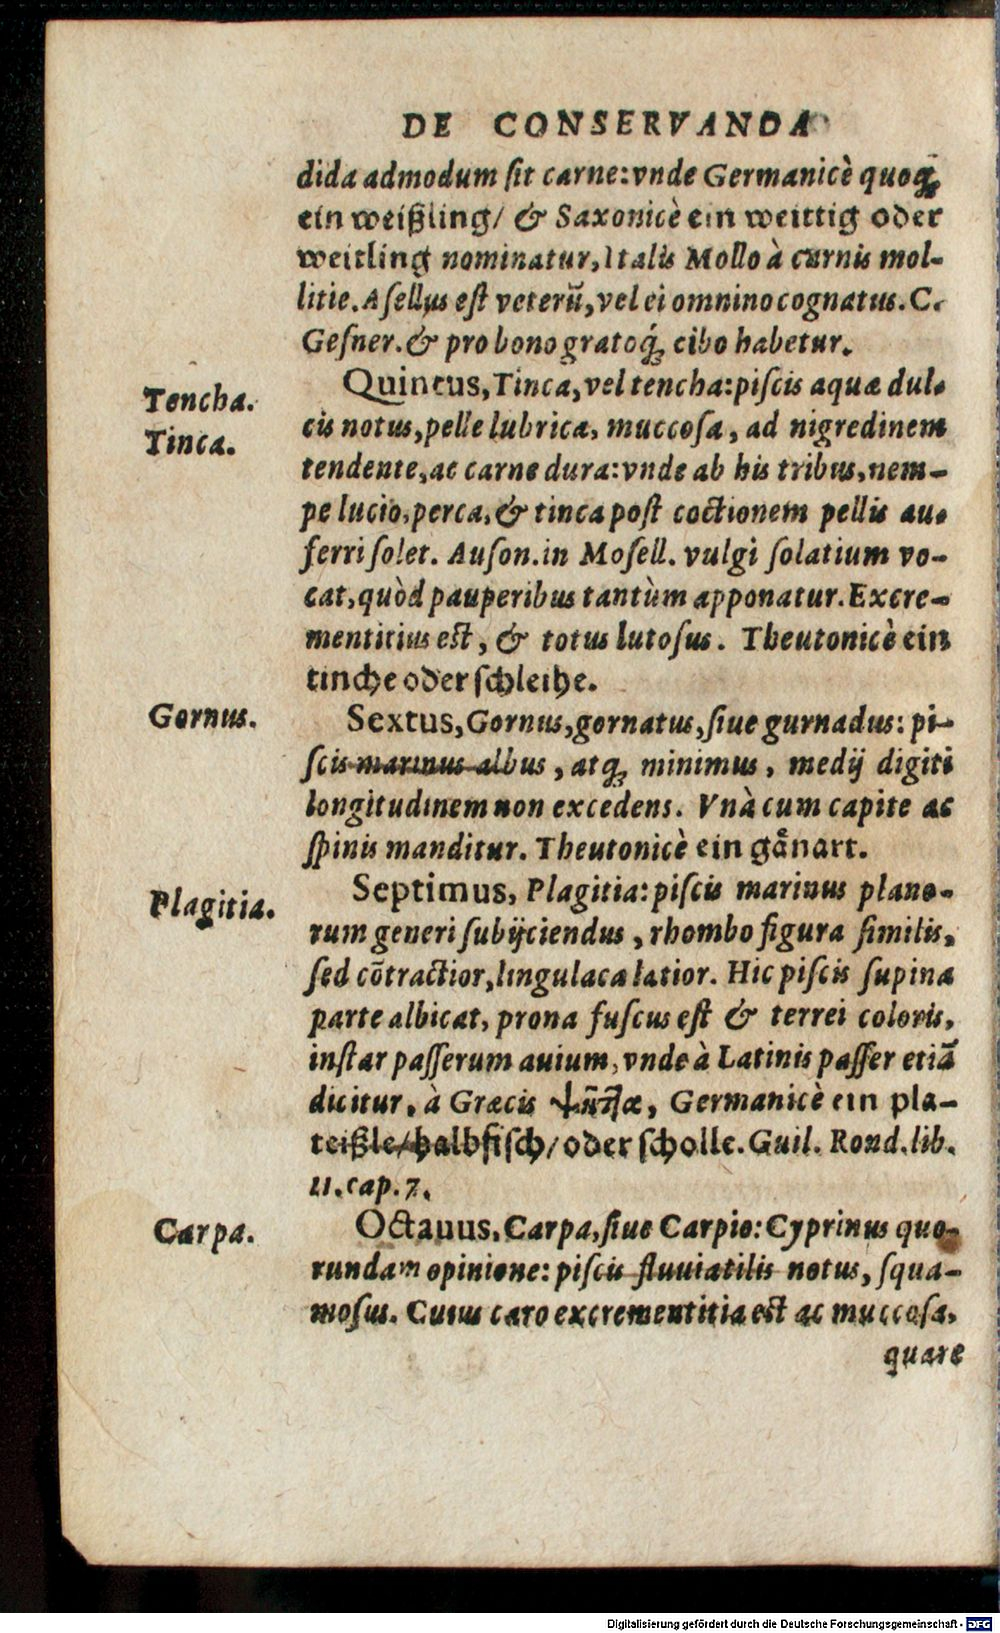 DE CONSERVANDA
dida admodum sit carne: vnde Germanicè quoq́;
ein weißling/ & Saxonicè ein weittig oder
weitling nominatur, Italis Mollo à carnis mol-
litie. Asellus est veterū, vel ei omnino cognatus. C.
Gesner. & pro bono gratoq́; cibo habetur.
Tencha.
Quintus, Tinca, vel tencha: piscis aquæ dul-
Tinca.
cis notus, pelle lubrica, muccosa, ad nigredinem
tendente, ac carne dura: vnde ab his tribus, nem-
pe lucio, perca, & tinca post coctionem pellis au-
ferri solet. Auson. in Mosell. vulgi solatium vo-
cat, quòd pauperibus tantùm apponatur. Excre-
mentitius est, & totus lutosus. Theutonicè ein
tinche oder schleihe.
Gornus.
Sextus, Gornus, gornatus, siue gurnadus: pi-
scis marinus albus, atq; minimus, medij digiti
longitudinem non excedens. Vnà cum capite ac
spinis manditur. Theutonicè ein gånart.
Plagitia.
Septimus, Plagitia: piscis marinus plano-
rum generi subijciendus, rhombo figura similis,
sed cōtractior, lingulaca latior. Hic piscis supina
parte albicat, prona fuscus est & terrei coloris,
instar passerum auium, vnde à Latinis passer etiā
dicitur, à Græcis Germanicè ein pla-
teißle/halbfisch/oder scholle. Guil. Rond. lib.
11. cap. 7.
Carpa.
Octauus, Carpa, siue Carpio: Cyprinus quo-
rundam opinione: piscis fluuiatilis notus, squa-
mosus. Cuius caro excrementitia est ac muccosa,
quare
Digitalisierung gefördert durch die Deutsche Forschungsgemeinschaft - DFG